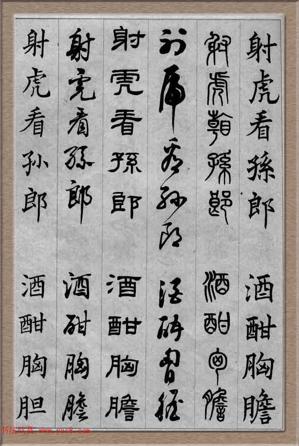 射虎看孫郎 酒酣胸膽
射虎看孫郎 酒酣胸膽
射虎看孫郎 酒酣胸膽
射虎看孫郎 酒酣胸膽
射虎看孫郎 酒酣胸膽
射虎看孙郎 酒酣胸胆